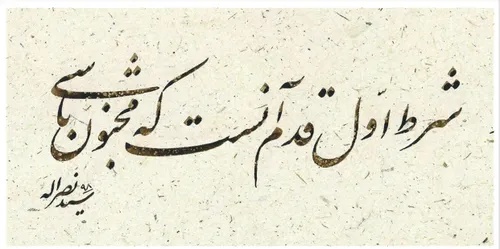 شرط اول قدم آنست که مجنون باشی
سید نصراله